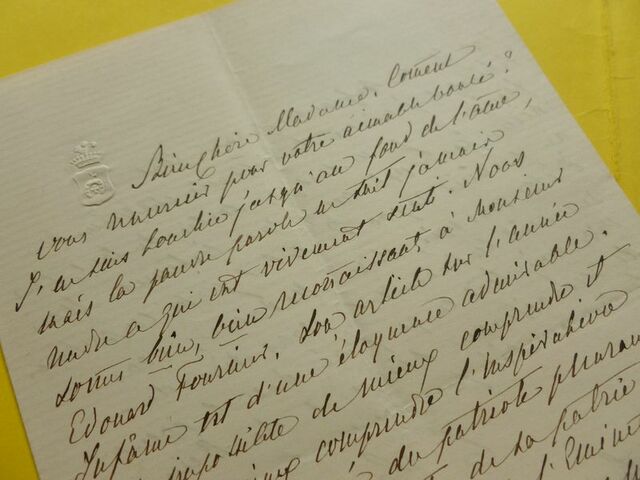 Bien Chère Madame, Coment
vous remercier pour votre aimable bonté?
J'en suis touchée jusqu'au fond de l'âme,
mais la pauvre parole ne sait jamais
rendre ce qui est vivement senti. Nous
somes bien, bien reconnaissants à Monsieur
Edouard Fournier. Son article sur l'année
Infâme est d'une éloquence admirable.
impossibilité de mieux comprendre et
mieux comprendre l'inspiration
du patriote pleurant
de la patrie